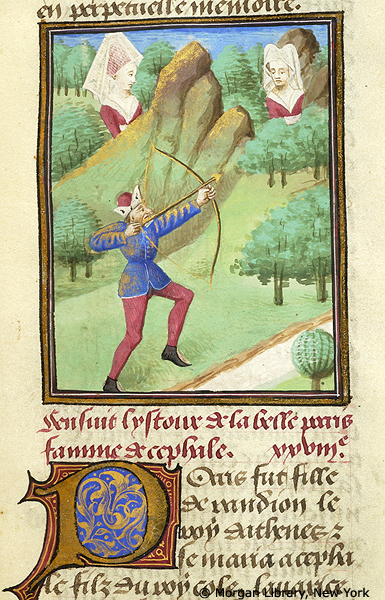 en perpetuelle memoire.
Sensuit lystoire de la belle pocris
famme de cephale. xxviii.e
Pocris fut fille
de pandion le
roy dathenes z
se maria a cepha
le filz du roy
© Morgan Library, New York